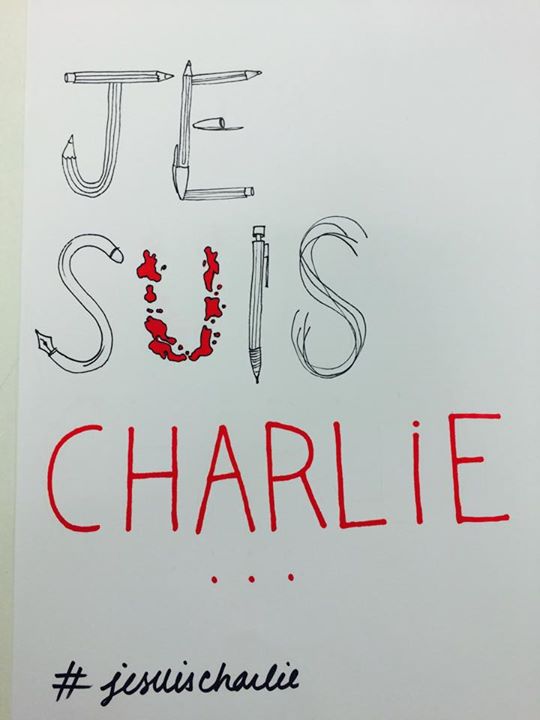 JE
SUIS
CHARLiE
...
# jesuischarlie